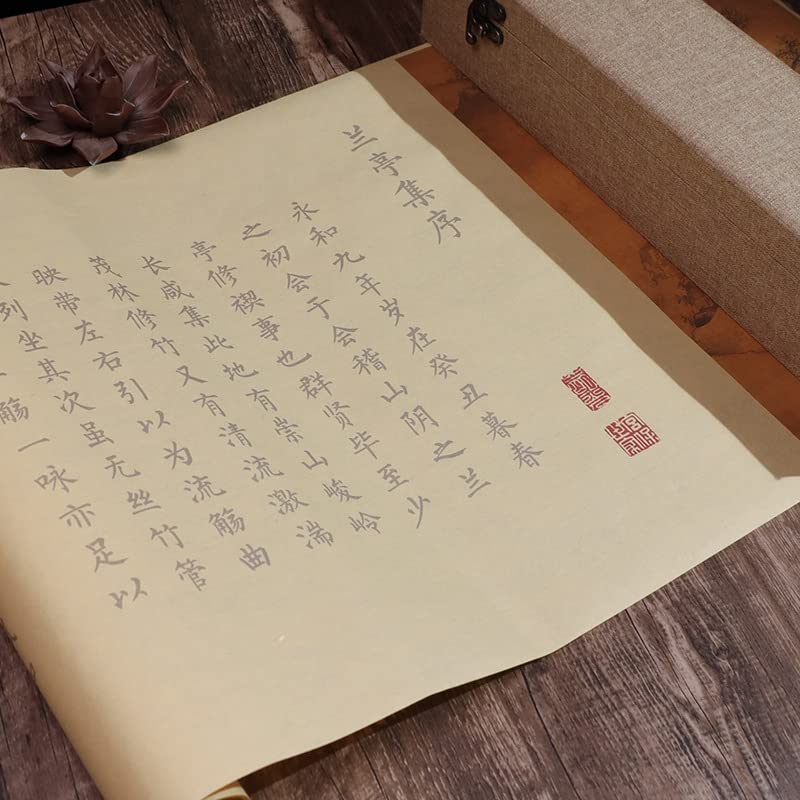 兰亭集序
永和九年岁在癸丑暮春
之初会于会稽山阴之兰
亭修禊事也群贤毕至少
长咸集此地有崇山峻岭
茂林修竹又有清流激湍
映带左右引以为流觞曲
列坐其次虽无丝竹管
觞一咏亦足以